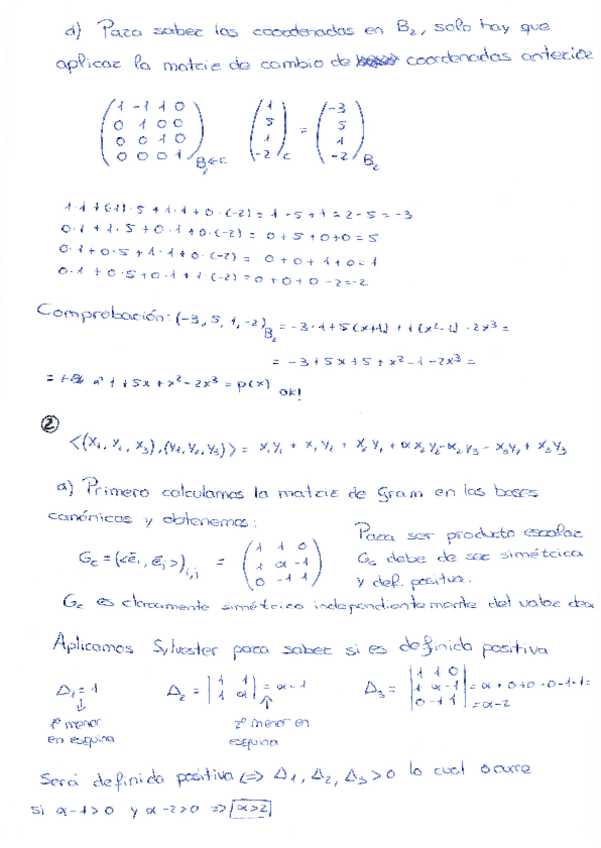 d) Para saber las coordenadas en B₂, solo hay que
aplicar la matriz de cambio de coordenadas anterior
(1 -1 1 0; 0 1 0 0; 0 0 1 0; 0 0 0 1)B₂←C (1; 5; 1; -2)C = (-3; 5; 1; -2)B₂
1·1+(-1)·5+1·1+0·(-2)=1-5+1=2-5=-3
0·1+1·5+0·1+0·(-2)= 0+5+0+0=5
0·1+0·5+1·1+0·(-2)= 0+0+1+0=1
0·1+0·5+0·1+1·(-2)=0+0+0-2=-2
Comprobación: (-3, 5, 1, -2)B₂ = -3·1+5(x+1)+1(x²-1)-2x³=
= -3+5x+5+x²-1-2x³=
= 1+5x+x²-2x³=p(x) ok!
②
<(x₁, x₂, x₃),(y₁,y₂,y₃)> = x₁y₁ + x₁y₂ + x₂y₁ + αx₂y₂-x₂y₃-x₃y₂+x₃y₃
a) Primero calculamos la matriz de Gram en las bases
canónicas y obtenemos:
Gc=(<ēi, ēj>)i,j = (1 1 0; 1 α -1; 0 -1 1)
Para ser producto escalar
Gc debe de ser simétrica
y def. positiva.
Gc es claramente simétrica independientemente del valor de α
Aplicamos Sylvester para saber si es definida positiva
Δ₁=1 Δ₂=|1 1; 1 α|=α-1 Δ₃=|1 1 0; 1 α -1; 0 -1 1|=α+0+0-0-1-1=
=α-2
↓ ↑
1º menor 2º menor en
en esquina esquina
Será definida positiva <=> Δ₁, Δ₂, Δ₃>0 lo cual ocurre
si α-1>0 y α-2>0 => α>2